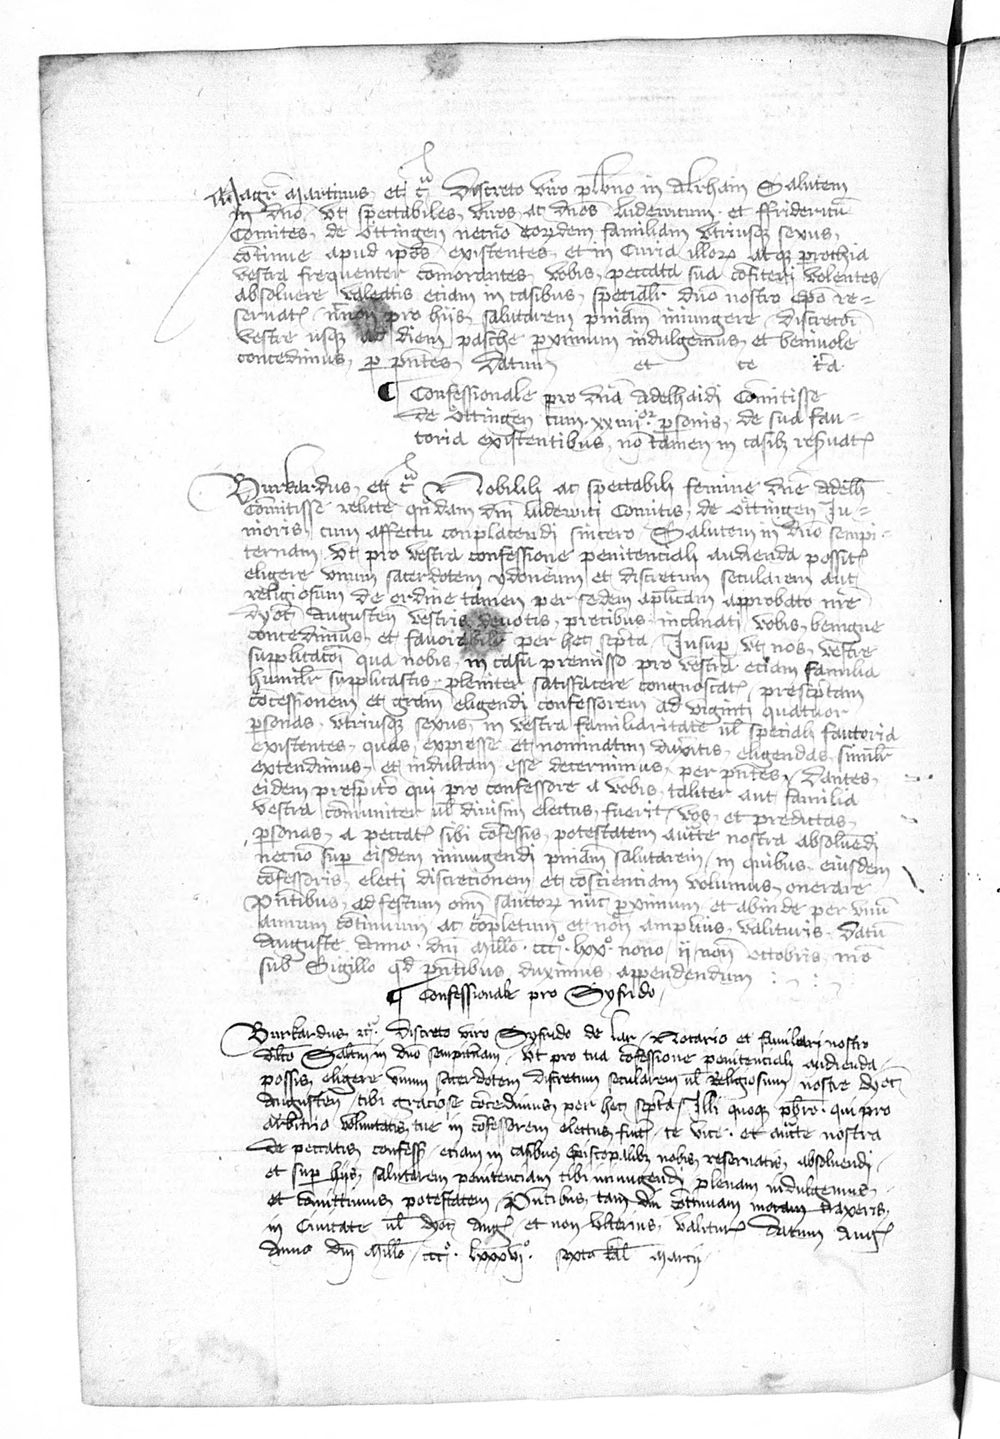 Magr Martinus et c Discreto viro plbno in Alrhain Salutem
in dno vt spectabiles viros ac dnos ludewicum et ffridericu
Comites de Ottingen necno eordem familiam vtriusq sexus
cotinue apud ipos existentes et in Curia illor atq prochia
vestra frequenter comorantes vobis peccata sua cofiteri volentes
absoluere valeatis etiam in casibus specialr dno nostro Epo re-
seruat pro hijs salutarem pniam iniungere discretoi
vestre usq ad diem pasche pximum indulgemus et beniuole
concedimus p pntes Datum et ce tra
¶ Confessionale pro dna Adelhaidi Comitisse
de Ottingen cum xxiiij or psonis de sua fau-
toria existentibus no tamen in casibz resuat
Burkardus et c Nobili ac spectabili femine dne Adelh
Comitisse relicte qndam dni ludewici Comitis de Ottingen Ju-
nioris cum affectu conplacendi sincero Salutem in dno sempi-
ternam vt pro vestra confessione penitenciali audienda possit
eligere vnum sacerdotem ydoneum et discretum secularem aut
religiosum de ordine tamen per sedem aplicam approbato nre
dyoc Augusten vestris deuotis precibus inclinati vobis benigne
concedimus et fauorabilr per hec scpta Insup vt nos vestre
supplicacoi qua nobis in casu premisso pro vestra eciam familia
humilr supplicastis pleniter satisfacere congnoscat prescptam
cocessionem et gram eligendi confessorem ad viginti quatuor
psonas vtriusq sexus in vestra familiaritate ul speciali fautoria
existentes quas expresse et nominatim duxitis eligendas similr
extendimus et indultam esse decernimus per pntes Dantes
eidem prespitro qui pro confessore a vobis taliter aut familia
vestra comuniter ul diuisim electus fuerit vos et predictas
psonas a peccat sibi cofessis potestatem aucte nostra absoluedi
necno sup eisdem iniungendi pniam salutarem in quibus eiusdem
cofessoris electi discrecionem et coscienciam volumus onerare
Pntibus ad festum oim sanctor nuc pximum et abinde per vnu
annum cotinuum ac copletum et non amplius valituris Datu
Auguste Anno dni Millo ccc lxx nono ij non Octobris nro
sub Sigillo qd pntibus duximus appendendum
¶ Confessionale pro Syfrido
Burkardus rc Discreto viro Syfrido de lar Notario et familiari nostro
dilco Saltm in dno sempitnam Vt pro tua cofessione penitenciali audienda
possis eligere vnum sacerdotem discretum secularem ul Religiosum nostre dyoc
Augusten tibi graciose cocedimus per hec scpta Illi quoq pbro qui pro
arbitrio voluntatis tue in cofessorem electus fuit te vice et aucte nostra
de peccatis confess etiam in casibus Episcopalibz nobis reseruatis absoluendi
et sup hijs salutarem penitenciam tibi iniungendi plenam indulgemus
et comittimus potestatem Pntibus tam diu cotinuam moram traxeris
in Ciuitate ul dyoc Aug et non vlterius valitur Datum Aug
Anno dni Millo ccc lxxxvj sexto kal Marcij